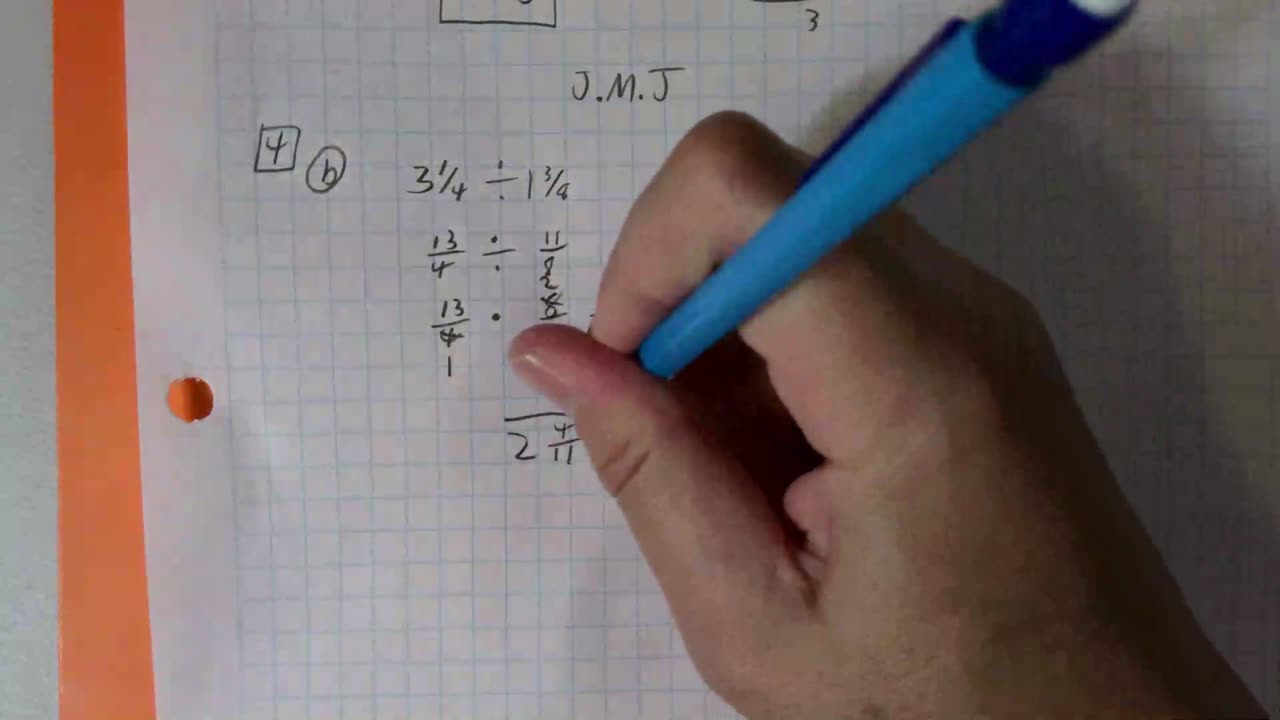 3
J.M.J
4 b 3 1/4 ÷ 1 3/8
13/4 ÷ 11/8
2
13/4 · 8
1
2 4/11